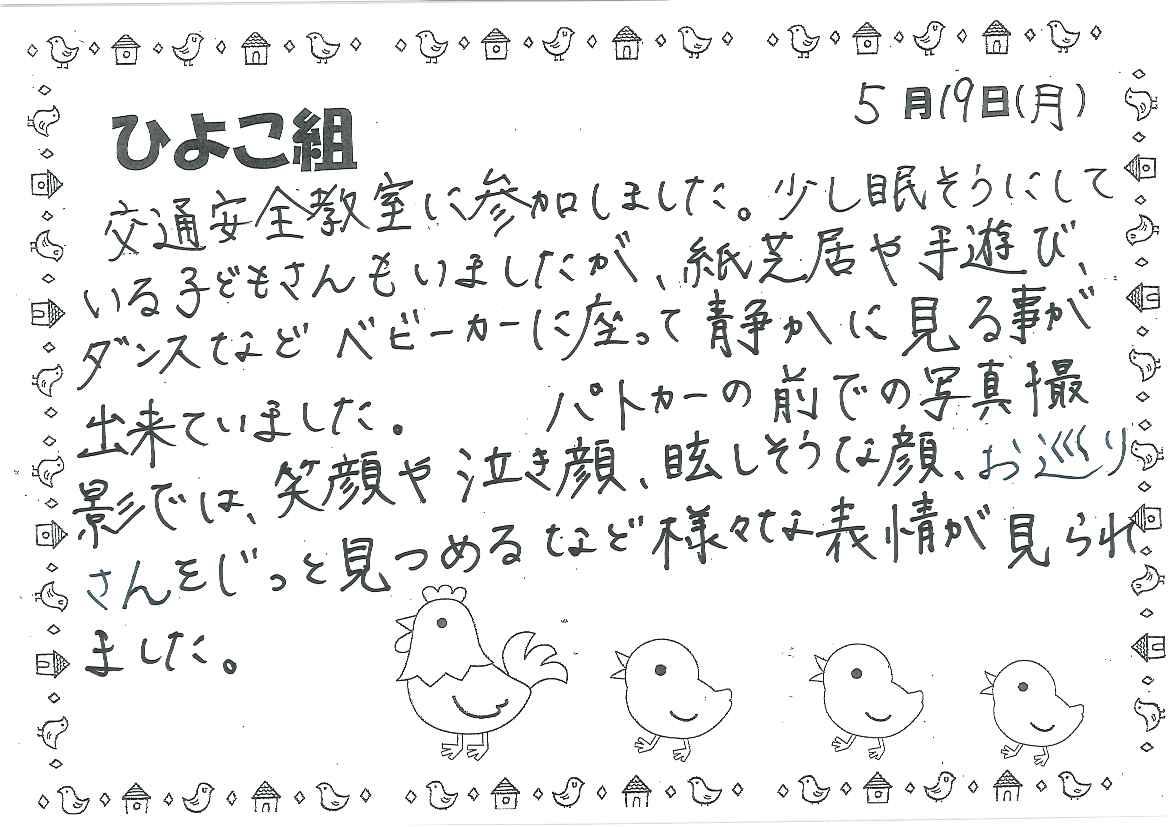 5月19日(月)
ひよこ組
交通安全教室に参加しました。少し眠そうにして
いる子どもさんもいましたが、紙芝居や手遊び、
ダンスなど ベビーカーに座って静かに見る事が
出来ていました。 パトカーの前での写真撮
影では、笑顔や泣き顔、眩しそうな顔、お巡り
さんをじっと見つめるなど様々な表情が見られ
ました。